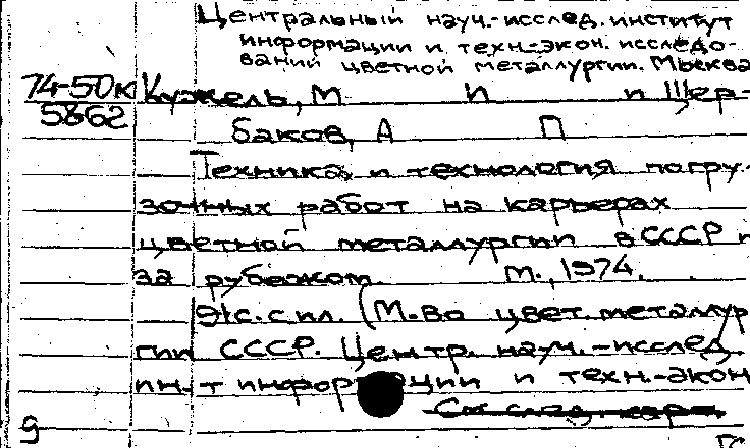 Центральный науч.-исслед. институт
информации и техн.-экон. исследо-
ваний цветной металлургии. Москва
74-50к Кужель, М И и Щер-
5862 баков, А П
Техника и технология погру-
зочных работ на карьерах
цветной металлургии в СССР и
за рубежом. М., 1974.
91с. с ил. (М-во цвет. металлур
гии СССР. Центр. науч.-исслед.
ин-т информации и техн.-экон
См след. карт.
9